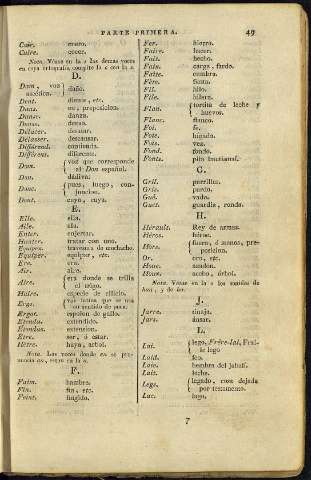 PARTE PRIMERA. 49
Cuir. cuero.
Cuire. cocer.
Nota. Véase en la
D.
Dam, voz
daño.
Dent. diente, etc.
Dans. en, preposicion.
Danse. danza.
Dense. denso.
Délacer. desatar.
Délasser. descansar.
Différend. contienda.
Différent. diferente.
Dom. voz que corresponde
al Don español.
Don. dádiva.
Donc. pues, luego, con-
Dont. cuyo, cuya.
E.
Elle. ella.
Aile. ala.
Enter. enjertar.
Hanter. tratar con uno.
Equiper. equipar, etc.
Ere. era.
Air. aire.
Aire. era donde se trilla
el trigo.
Haire. especie de cilicio.
Ergot. espolon de gallo.
Etendu. extendido.
Etendue. extension.
Etre. ser, ó estar.
Hêtre. haya, árbol.
Nota. Las voces donde en se pro-
F.
Faim. hambre.
Fin. fin, etc.
Feint. fingido.
Fer. hierro.
Faire. hacer.
Fait. hecho.
Faix. carga, fardo.
Faîte. cumbre.
Fête. fiesta.
Fil. hilo.
File. hilera.
Flan. tortita de leche y
huevos.
Flanc. flanco.
Foi. fe.
Foie. hígado.
Fois. vez.
Fond. fondo.
Fonts. pila bautismal.
G.
Gril. parrillas.
Gris. pardo.
Gué. vado.
Guet. guardia, ronda.
H.
Hérault. Rey de armas.
Héros. héroe.
Hors. fuera, ó menos, pre-
posicion.
Or. oro, etc.
Houe. azadon.
Houx. acebo, árbol.
Nota. Véase en la
J.
Jarre. tinaja.
Jars. ánsar.
L.
Lai. lego, Frère-lai, Frai-
le lego
Laid. feo.
Laie. hembra del jabalí.
Lait. leche.
Legs. legado, cosa dejada
por testamento.
Lac. lago.
7